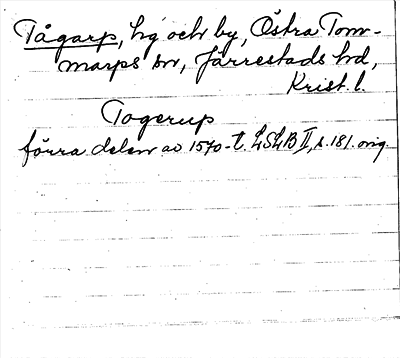 Tågarp, hg och by, Östra Tom-
marps sn, Järrestads hd,
Krist. l.
Togerup
förra delen av 1570-t. LSLB II, s. 181. orig.